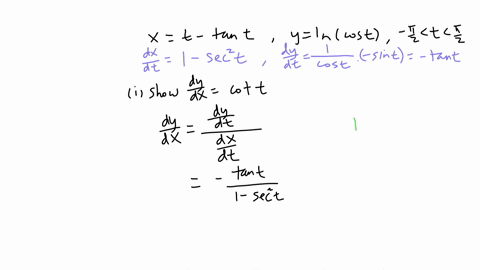 x = t - tan t , y = ln(cos t) , -π/2 < t < π/2
dx/dt = 1 - sec²t , dy/dt = 1/cos t · (-sin t) = -tan t
(i) show dy/dx = cot t
dy/dx = (dy/dt)/(dx/dt)
= - tan t/(1 - sec²t)